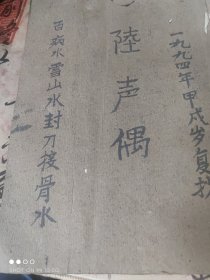 一九九四年甲戌岁复抄
陸声偶
百病水雪山水封刀接骨水